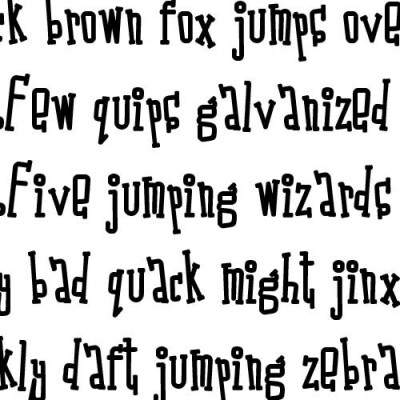 ck brown fox jumps ove
.Few quips galvanized
.Five jumping wizards
y bad quack might jinx
kly daft jumping zebra